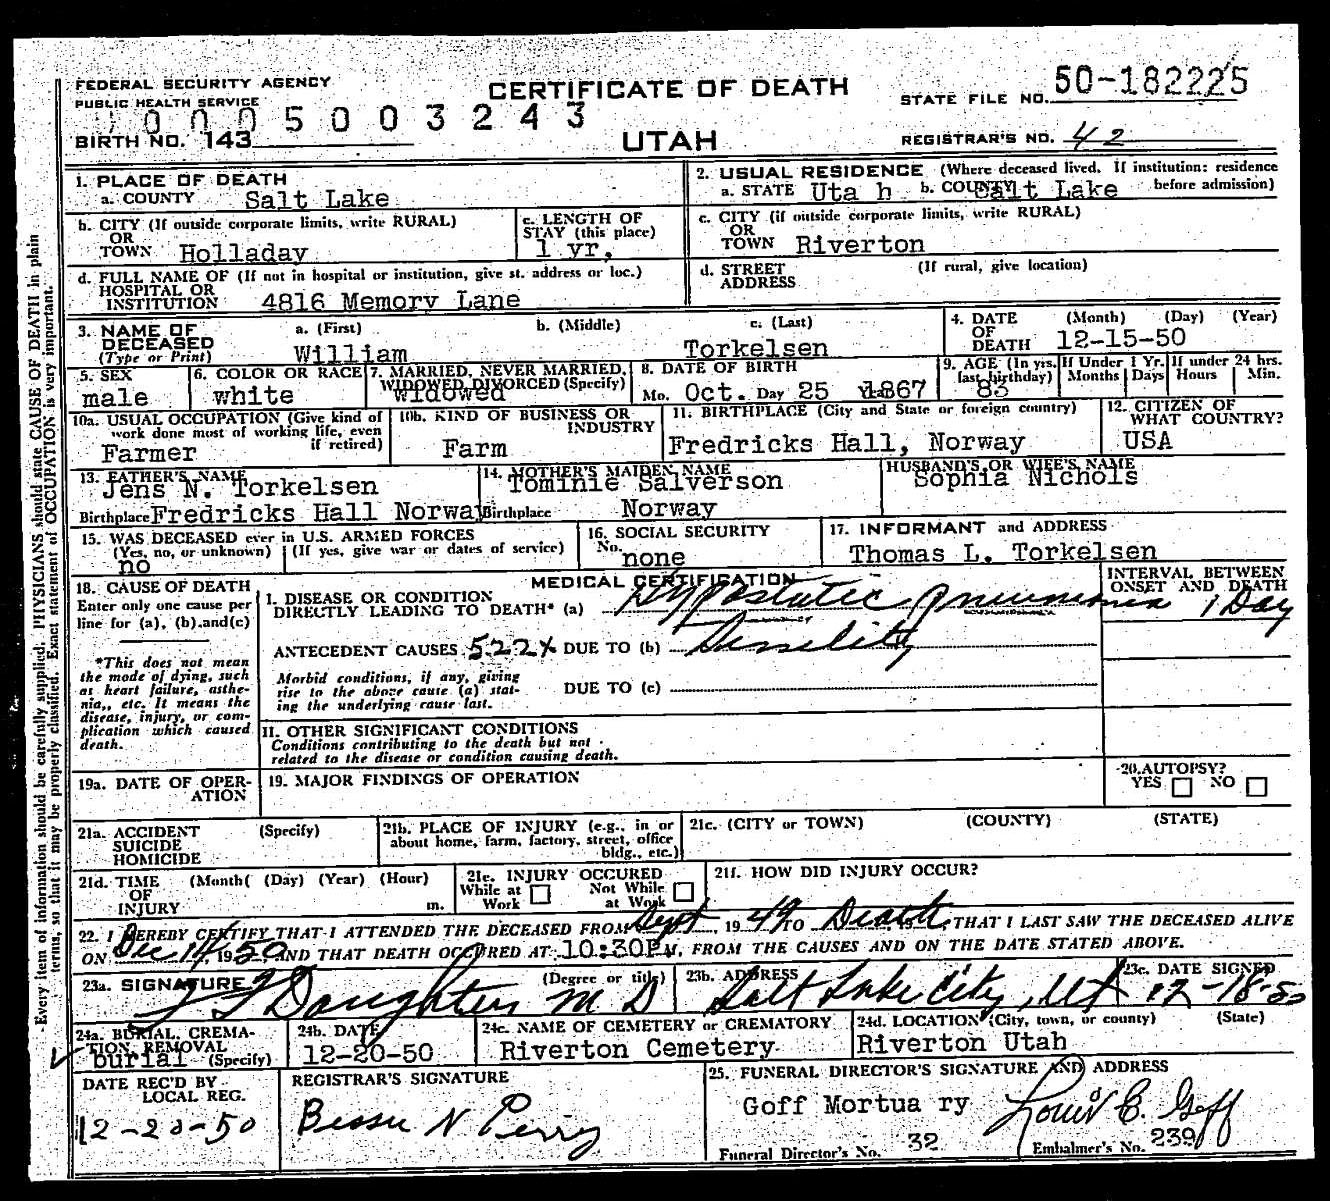 FEDERAL SECURITY AGENCY
PUBLIC HEALTH SERVICE
CERTIFICATE OF DEATH
STATE FILE NO. 50-182225
0005003243
BIRTH NO. 143
UTAH
REGISTRAR'S NO. 42
1. PLACE OF DEATH
a. COUNTY Salt Lake
2. USUAL RESIDENCE (Where deceased lived. If institution: residence before admission)
a. STATE Uta h b. COUNTY Salt Lake
b. CITY (If outside corporate limits, write RURAL)
OR
TOWN Holladay
c. LENGTH OF
STAY (this place)
1 yr,
c. CITY (if outside corporate limits, write RURAL)
OR
TOWN Riverton
d. FULL NAME OF (If not in hospital or institution, give st. address or loc.)
HOSPITAL OR
INSTITUTION 4816 Memory Lane
d. STREET (If rural, give location)
ADDRESS
3. NAME OF
DECEASED
(Type or Print)
a. (First) b. (Middle) c. (Last)
William Torkelsen
4. DATE (Month) (Day) (Year)
OF
DEATH 12-15-50
5. SEX
male
6. COLOR OR RACE
white
7. MARRIED, NEVER MARRIED,
WIDOWED DIVORCED (Specify)
Widowed
8. DATE OF BIRTH
Mo. Oct. Day 25 Year 1867
9. AGE (In yrs. last birthday)
83
If Under 1 Yr.
Months Days
If under 24 hrs.
Hours Min.
10a. USUAL OCCUPATION (Give kind of
work done most of working life, even
if retired)
Farmer
10b. KIND OF BUSINESS OR
INDUSTRY
Farm
11. BIRTHPLACE (City and State or foreign country)
Fredricks Hall, Norway
12. CITIZEN OF
WHAT COUNTRY?
USA
13. FATHER'S NAME
Jens N. Torkelsen
Birthplace Fredricks Hall Norway
14. MOTHER'S MAIDEN NAME
Tominie Salverson
Birthplace Norway
HUSBAND'S OR WIFE'S NAME
Sophia Nichols
15. WAS DECEASED ever in U.S. ARMED FORCES
(Yes, no, or unknown) (If yes, give war or dates of service)
no
16. SOCIAL SECURITY
No. none
17. INFORMANT and ADDRESS
Thomas L. Torkelsen
18. CAUSE OF DEATH
Enter only one cause per
line for (a), (b).and(c)
*This does not mean
the mode of dying, such
as heart failure, asthe-
nia,, etc. It means the
disease, injury, or com-
plication which caused
death.
MEDICAL CERTIFICATION
INTERVAL BETWEEN
ONSET AND DEATH
I. DISEASE OR CONDITION
DIRECTLY LEADING TO DEATH* (a) Hypostatic pneumonia 1 Day
ANTECEDENT CAUSES 522X DUE TO (b)
Morbid conditions, if any, giving
rise to the above cause (a) stat-
ing the underlying cause last.
DUE TO (c)
II. OTHER SIGNIFICANT CONDITIONS
Conditions contributing to the death but not
related to the disease or condition causing death.
19a. DATE OF OPER-
ATION
19. MAJOR FINDINGS OF OPERATION
20. AUTOPSY?
YES NO
21a. ACCIDENT (Specify)
SUICIDE
HOMICIDE
21b. PLACE OF INJURY (e.g., in or
about home, farm, factory, street, office
bldg., etc.)
21c. (CITY or TOWN) (COUNTY) (STATE)
21d. TIME (Month( (Day) (Year) (Hour)
OF
INJURY m.
21e. INJURY OCCURED
While at Work Not While at Work
21f. HOW DID INJURY OCCUR?
22. I HEREBY CERTIFY THAT I ATTENDED THE DECEASED FROM Sept, 1949 TO Death, 19, THAT I LAST SAW THE DECEASED ALIVE
ON Dec 14, 1950 AND THAT DEATH OCCURED AT 10:30P M, FROM THE CAUSES AND ON THE DATE STATED ABOVE.
23a. SIGNATURE (Degree or title)
Daughters M D
23b. ADDRESS
Salt Lake City, Ut
23c. DATE SIGNED
12-18-50
24a. BURIAL, CREMA-
TION REMOVAL
burial (Specify)
24b. DATE
12-20-50
24c. NAME OF CEMETERY or CREMATORY
Riverton Cemetery
24d. LOCATION (City, town, or county) (State)
Riverton Utah
DATE REC'D BY
LOCAL REG.
12-20-50
REGISTRAR'S SIGNATURE
Bessie N Perry
25. FUNERAL DIRECTOR'S SIGNATURE AND ADDRESS
Goff Mortua ry Louis C. Goff
Funeral Director's No. 32 Embalmer's No. 239
Every item of information should be carefully supplied. PHYSICIANS should state CAUSE OF DEATH in plain
terms, so that it may be properly classified. Exact statement of OCCUPATION is very important.